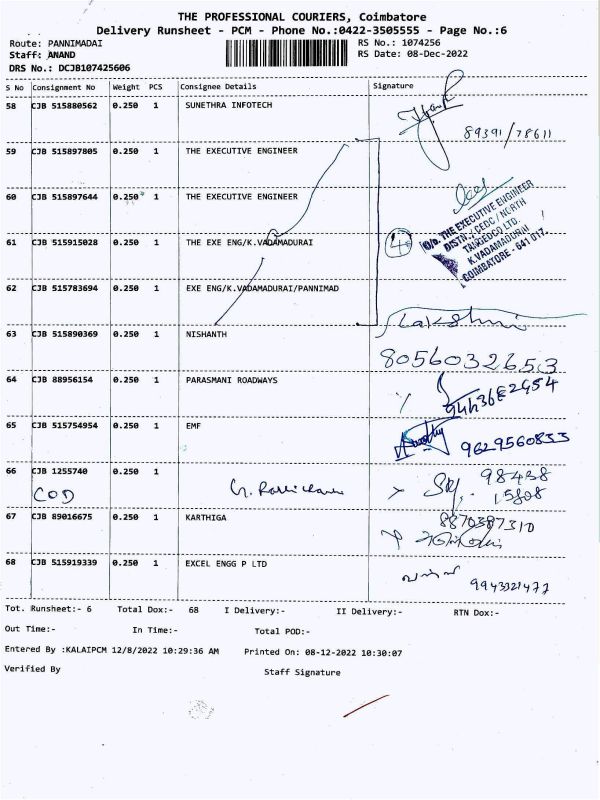 THE PROFESSIONAL COURIERS, Coimbatore
Delivery Runsheet - PCM - Phone No.:0422-3505555 - Page No.:6
Route: PANNIMADAI RS No.: 1074256
Staff: ANAND RS Date: 08-Dec-2022
DRS No.: DCJB107425606
S No Consignment No Weight PCS Consignee Details Signature
58 CJB 515880562 0.250 1 SUNETHRA INFOTECH
89391/78611
59 CJB 515897805 0.250 1 THE EXECUTIVE ENGINEER
60 CJB 515897644 0.250 1 THE EXECUTIVE ENGINEER
61 CJB 515915028 0.250 1 THE EXE ENG/K.VADAMADURAI 4
O/o. THE EXECUTIVE ENGINEER
DISTN./CEDC / NORTH
TANGEDCO LTD.
K.VADAMADURAI
COIMBATORE - 641 017.
62 CJB 515783694 0.250 1 EXE ENG/K.VADAMADURAI/PANNIMAD
Lakshmi
63 CJB 515890369 0.250 1 NISHANTH
8056032653
64 CJB 88956154 0.250 1 PARASMANI ROADWAYS
65 CJB 515754954 0.250 1 EMF
9629560833
66 CJB 1255740 0.250 1
COD
98438
15808
67 CJB 89016675 0.250 1 KARTHIGA
8870387310
68 CJB 515919339 0.250 1 EXCEL ENGG P LTD
9943321477
Tot. Runsheet:- 6 Total Dox:- 68 I Delivery:- II Delivery:- RTN Dox:-
Out Time:- In Time:- Total POD:-
Entered By :KALAIPCM 12/8/2022 10:29:36 AM Printed On: 08-12-2022 10:30:07
Verified By Staff Signature